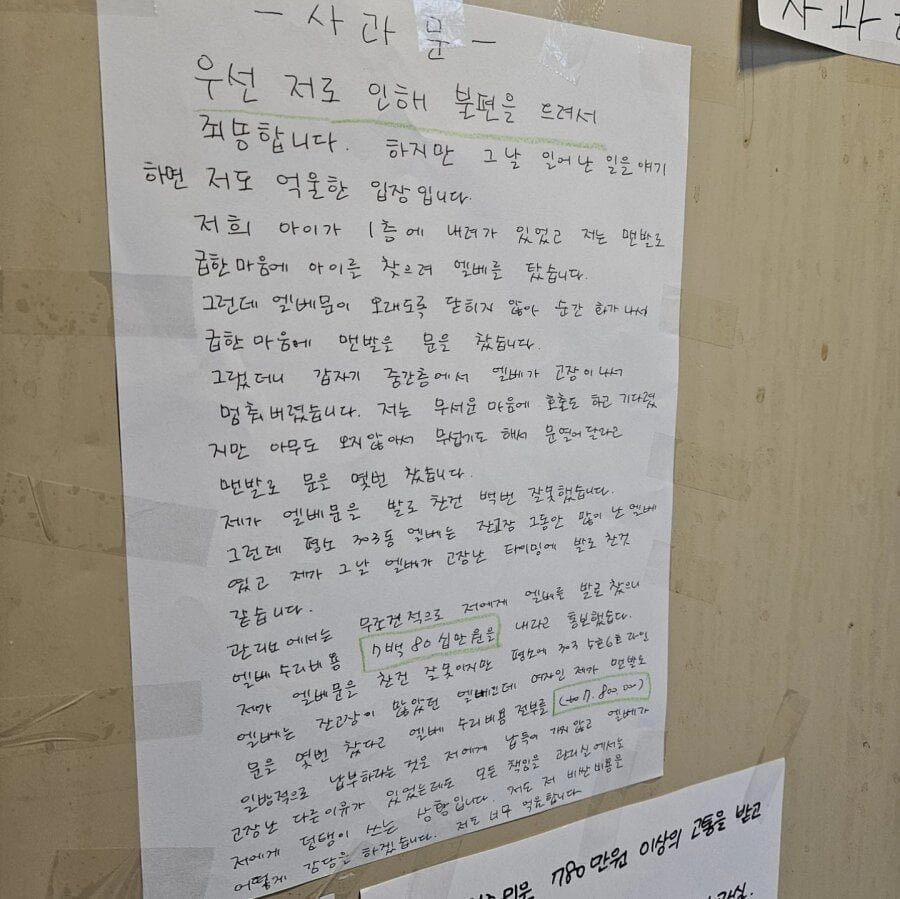 - 사 과 문 -
우선 저로 인해 불편을 드려서
죄송합니다. 하지만 그날 일어난 일을 얘기
하면 저도 억울한 입장입니다.
저희 아이가 1층에 내려가 있었고 저는 맨발로
급한 마음에 아이를 찾으려 엘베를 탔습니다.
그런데 엘베문이 오래도록 닫히지 않아 순간 화가 나서
급한 마음에 맨발을 문을 찼습니다.
그랬더니 갑자기 중간층에서 엘베가 고장이 나서
멈춰버렸습니다. 저는 무서운 마음에 호출도 하고 기다렸
지만 아무도 오지않아서 무섭기도 해서 문열어달라고
맨발로 문을 몇번 찼습니다.
제가 엘베문을 발로 찬건 백번 잘못했습니다.
그런데 평소 303동 엘베는 잔고장 그동안 많이 난 엘베
였고 제가 그날 엘베가 고장난 타이밍에 발로 찬것
같습니다.
관리소에서는 무조건적으로 저에게 엘베를 발로 찼으니
엘베 수리비용 7백 80 십만원을 내라고 통보했습니다.
제가 엘베문을 찬건 잘못이지만 평소에 303 5호6호 라인
엘베는 잔고장이 많았던 엘베인데 여자인 제가 맨발로
문을 몇번 찼다고 엘베 수리비용 전부를
일방적으로 납부하라는 것은 저에게 납득이 가지 않고 엘베가
고장난 다른이유가 있었는데도 모든 책임을 관리실에서는
저에게 덤탱이 쓰는 상황입니다. 저도 저 비싼비용을
어떻게 감당을 하겠습니다. 저도 너무 억울합니다
사과
780만원 이상의 고통을 받고